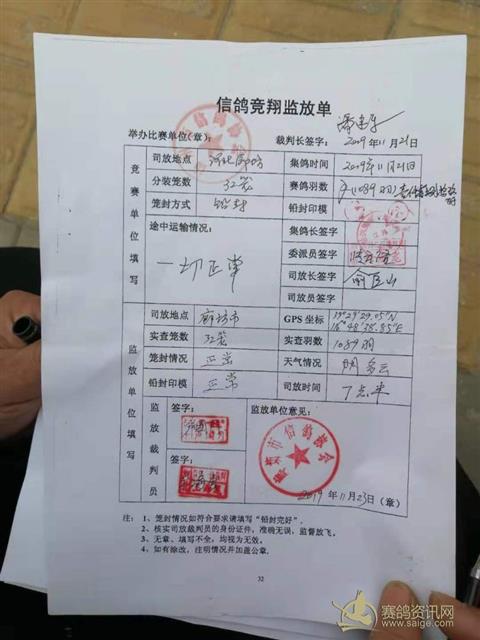 信鸽竞翔监放单
举办比赛单位(章): 裁判长签字:
2019年11月21日
竞赛单位填写
司放地点 河北廊坊 集鸽时间 2019年11月21日
分装笼数 32笼 赛鸽羽数 (1089羽)
笼封方式 铅封 铅封印模
途中运输情况: 集鸽长签字
一切正常 委派员签字
司放长签字 俞臣山
司放员签字
监放单位填写
司放地点 廊坊市 GPS 坐标 39°29′29.05″N
16°48′38.85″E
实查笼数 32笼 实查羽数 1089羽
笼封情况 正常 天气情况 阴多云
铅封印模 正常 司放时间 7点半
监放裁判员 签字: 监放单位意见:
签字:
市信鸽协会
2019年11月23日(章)
注: 1、笼封情况如符合要求请填写“铅封完好”。
2、核实司放裁判员的身份证件,准确无误,监督放飞。
3、无章、填写不全,均视为无效。
4、如有涂改,注明情况并加盖公章.
32
赛鸽资讯网
www.saige.com